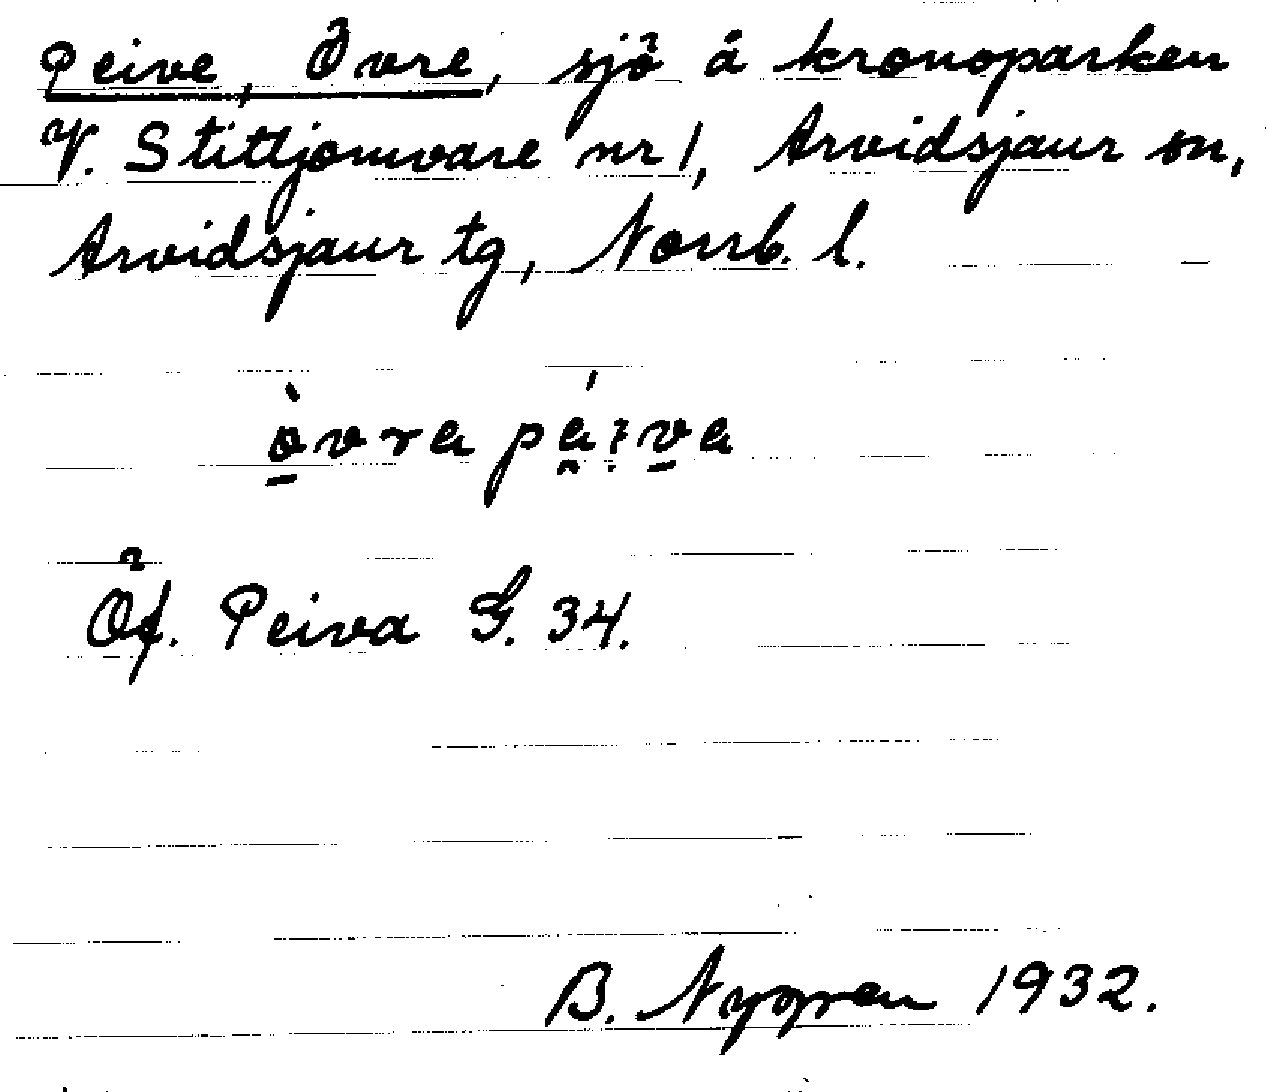 Peive, Övre, sjö å kronoparken
V. Stittjomvare nr 1, Arvidsjaur sn,
Arvidsjaur tg, Norrb. l.
övra
Öf. Peiva G. 34.
B. Nygren 1932.